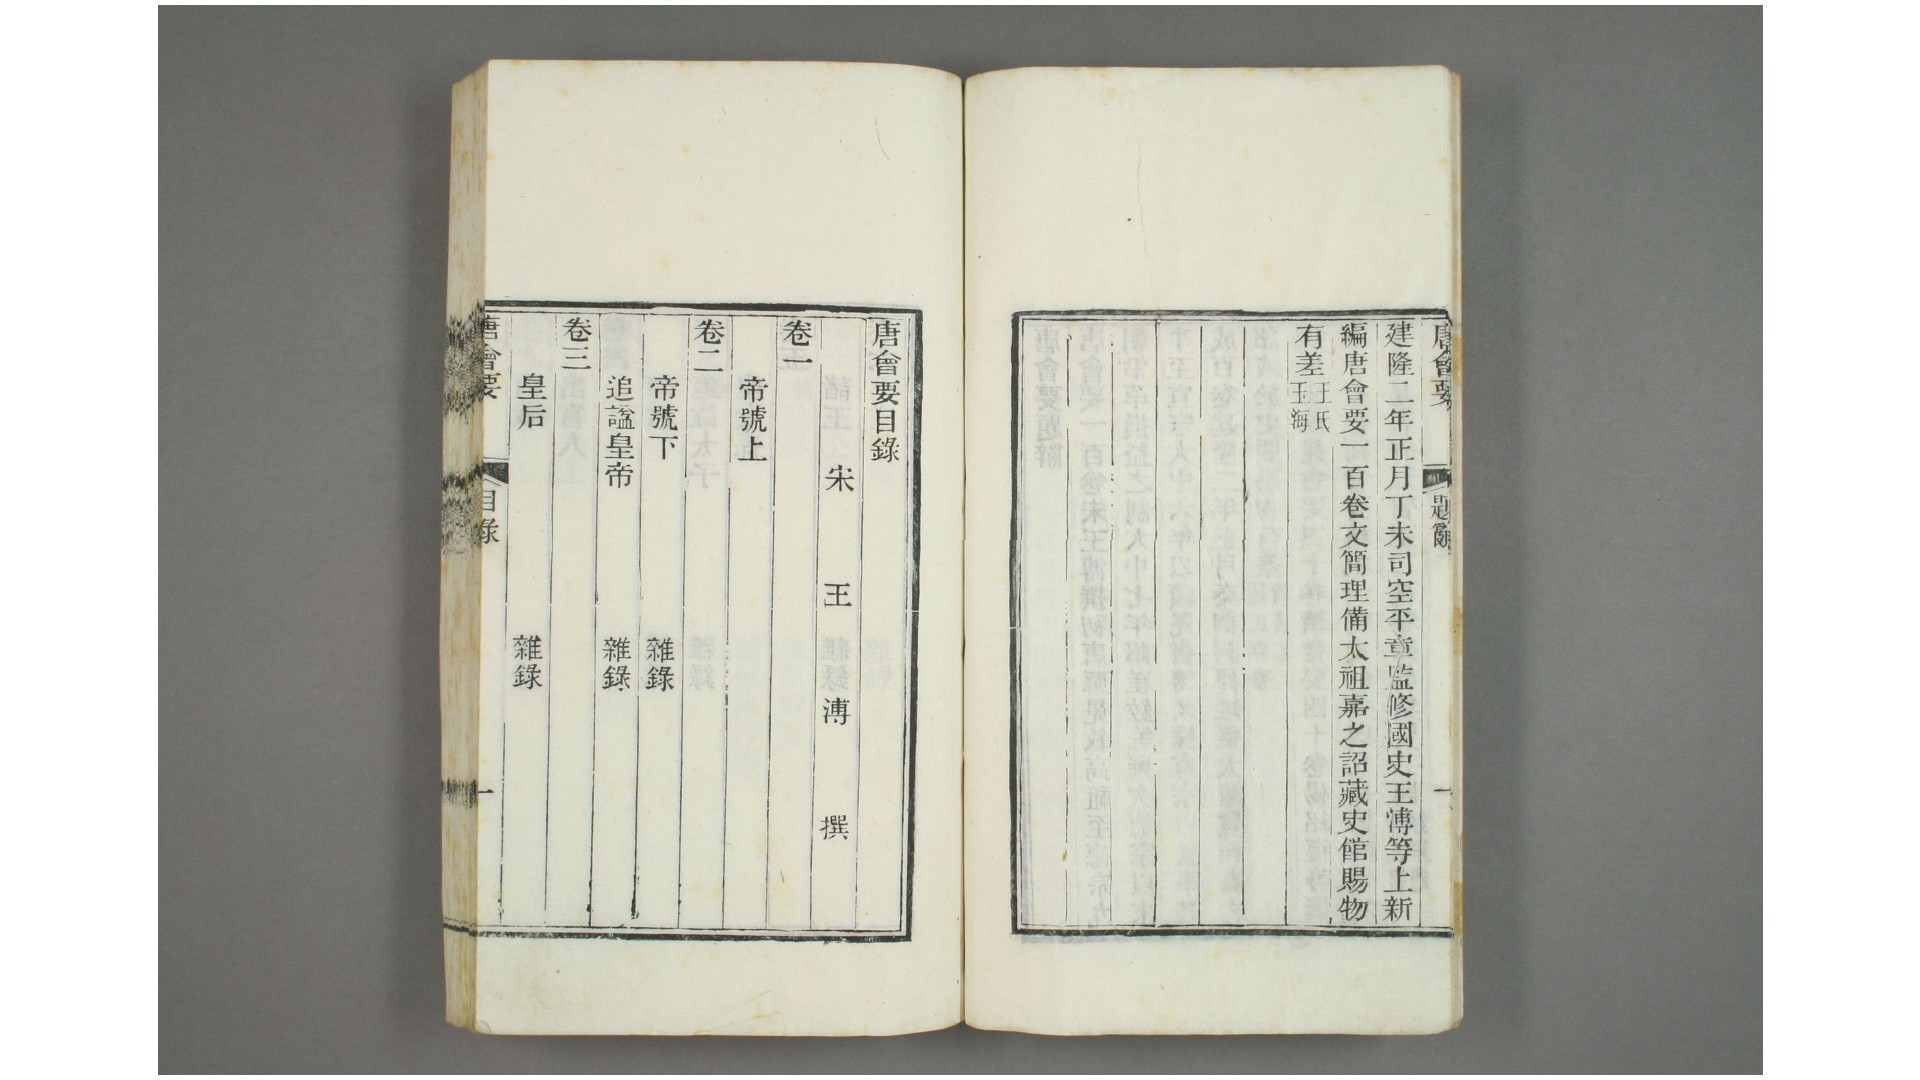 唐會要
題辭
一
建隆二年正月丁未司空平章監修國史王溥等上新
編唐會要一百卷文簡理備太祖嘉之詔藏史館賜物
有差王氏玉海
唐會要目錄
宋王溥撰
卷一
帝號上
卷二
帝號下 雜錄
追諡皇帝 雜錄
卷三
皇后 雜錄
唐會要
目錄
一